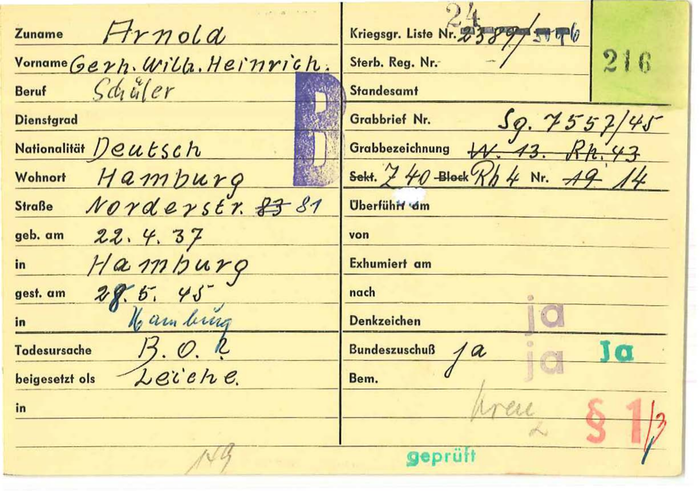 Zuname Arnold
Vorname Gerh. Wilh. Heinrich.
Beruf Schüler
Dienstgrad
Nationalität Deutsch
Wohnort Hamburg
Straße Norderstr. 83 81
geb. am 22.4.37
in Hamburg
gest. am 28.5.45
in Hamburg
Todesursache B.O.?
beigesetzt als Leiche.
in
149
B
24
Kriegsgr. Liste Nr. 2389/
216
Sterb. Reg. Nr. -/
Standesamt
Grabbrief Nr. Sg. 7557/45
Grabbezeichnung W. 13. Rh. 43
Sekt. Z 40 Block Rh 4 Nr. 19 14
Überführt am
von
Exhumiert am
nach
Denkzeichen ja
Bundeszuschuß ja ja Ja
Bem.
§ 1/3
geprüft